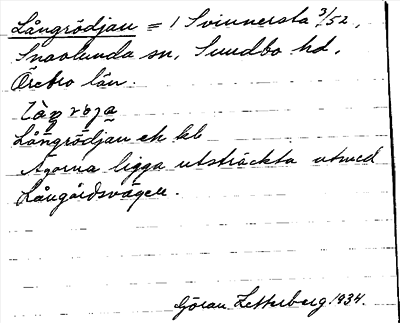 Långrödjan = 1 Svinnersta 3/52,
Snavlunda sn, Sundbo hd,
Örebro län.
Långrödjan ek kb
Ägorna ligga utsträckta utmed
Långåsdsvägen.
Göran Zetterberg 1934.